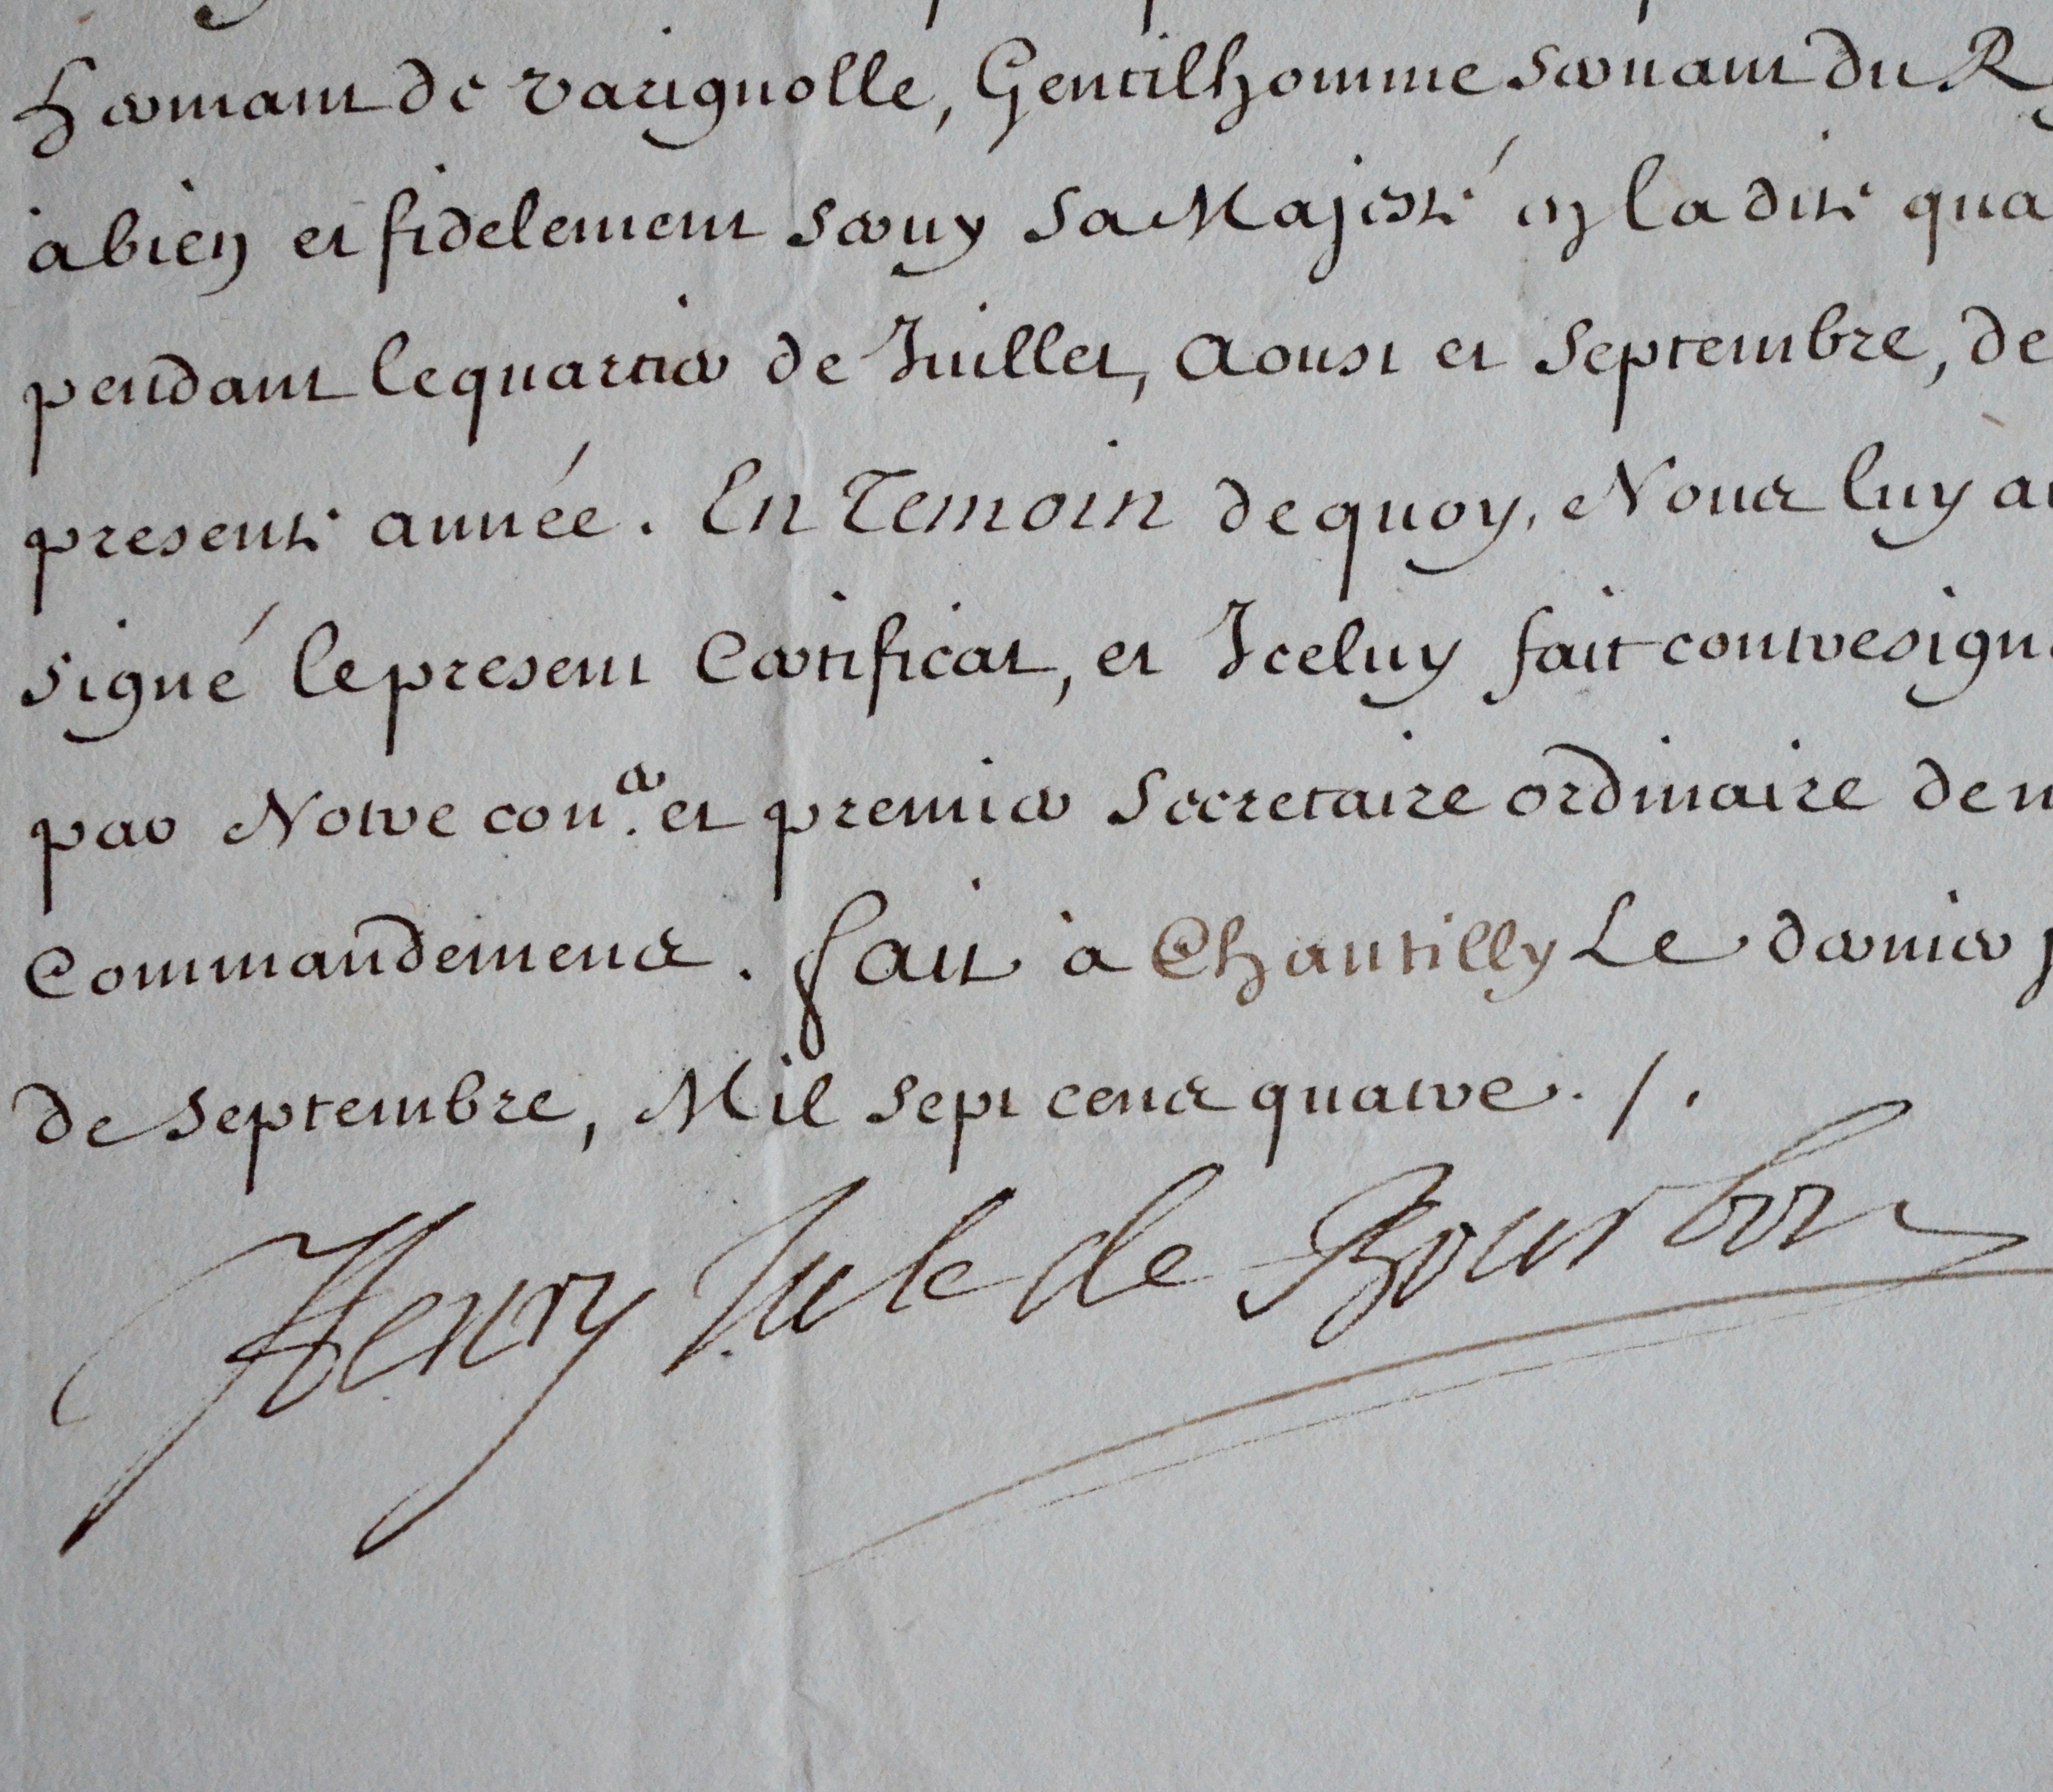 hermant de varignolle, Gentilhomme servant du R
a bien et fidelement servy Sa Majesté en la dite qua
pendant le quartier de Juillet, Aoust et Septembre, de
presente année. En Temoin de quoy, Nous luy a
signé le present Certificat, et Iceluy fait contresign
par Notre con.er et premier Secretaire ordinaire de n
Commandements. fait à Chantilly Le dernier j
de Septembre, Mil sept cents quatre./.
Henry Jule de Bourbon